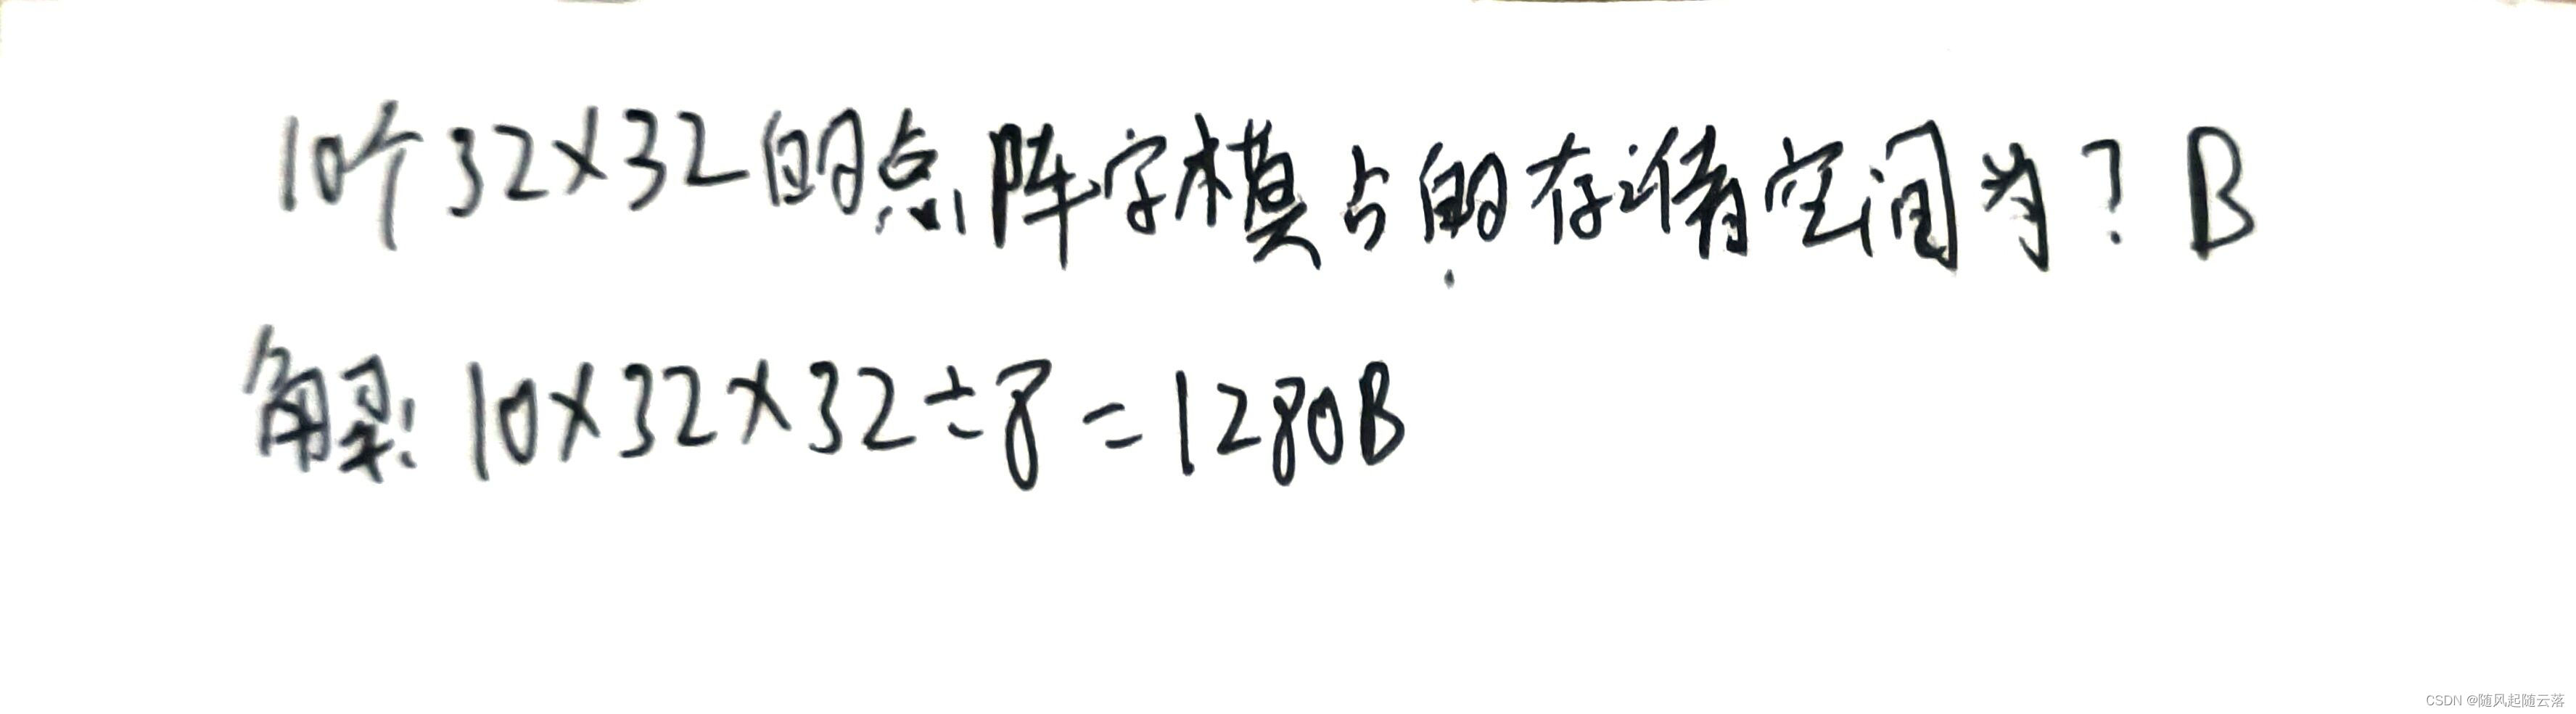 10个32×32的点阵字模占的存储空间为？B
解：10×32×32÷8=1280B
CSDN @随风起随云落